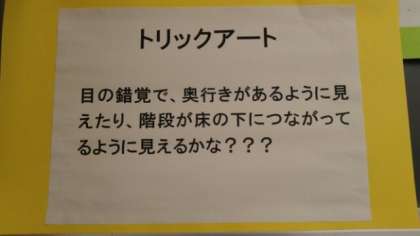 トリックアート
目の錯覚で、奥行きがあるように見
えたり、階段が床の下につながって
るように見えるかな？？？